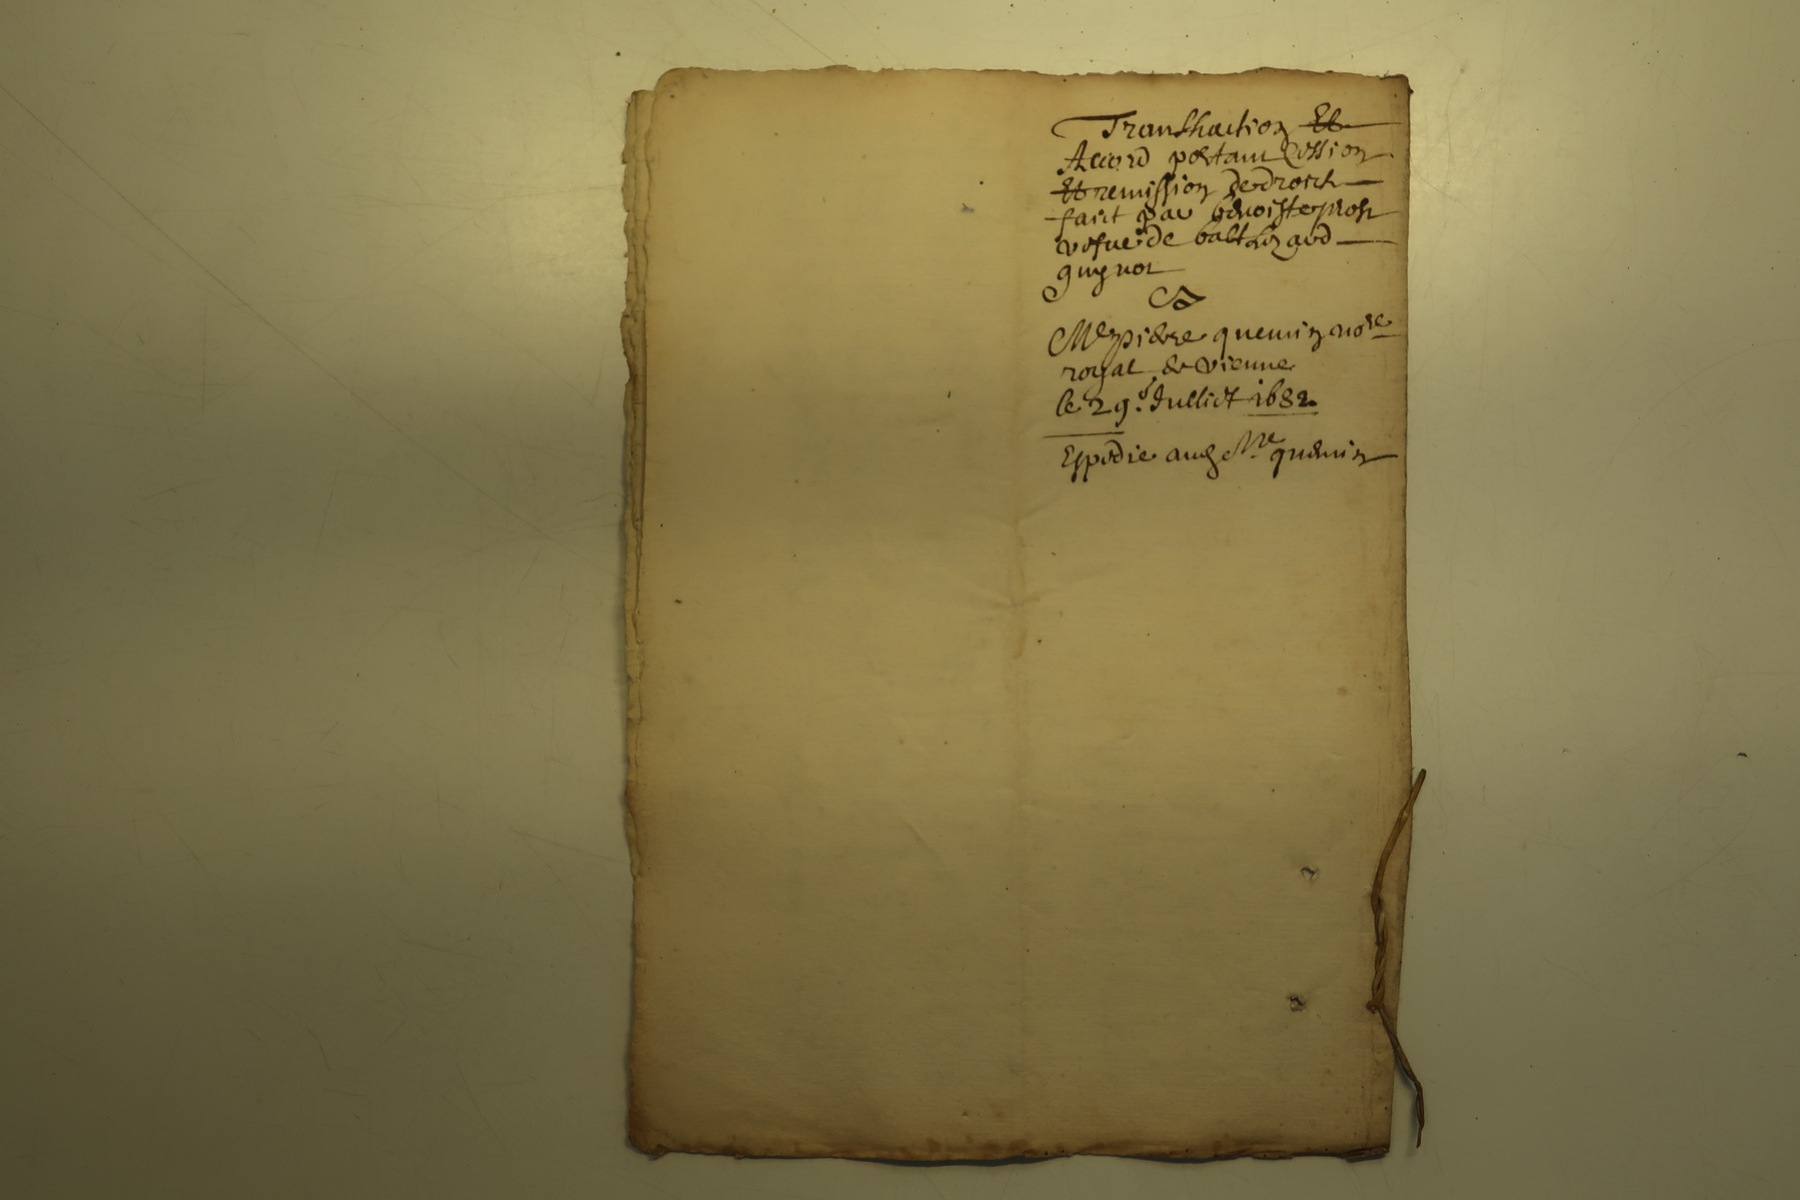 Transhaction Et
Accord portant Cession
Et remission de droict
faict par benoiste
vefue de balthazard
guynot
Ca
Me pierre quemin nore
royal de vienne
le 29e Juillet 1682
Expedie aud Me quemin